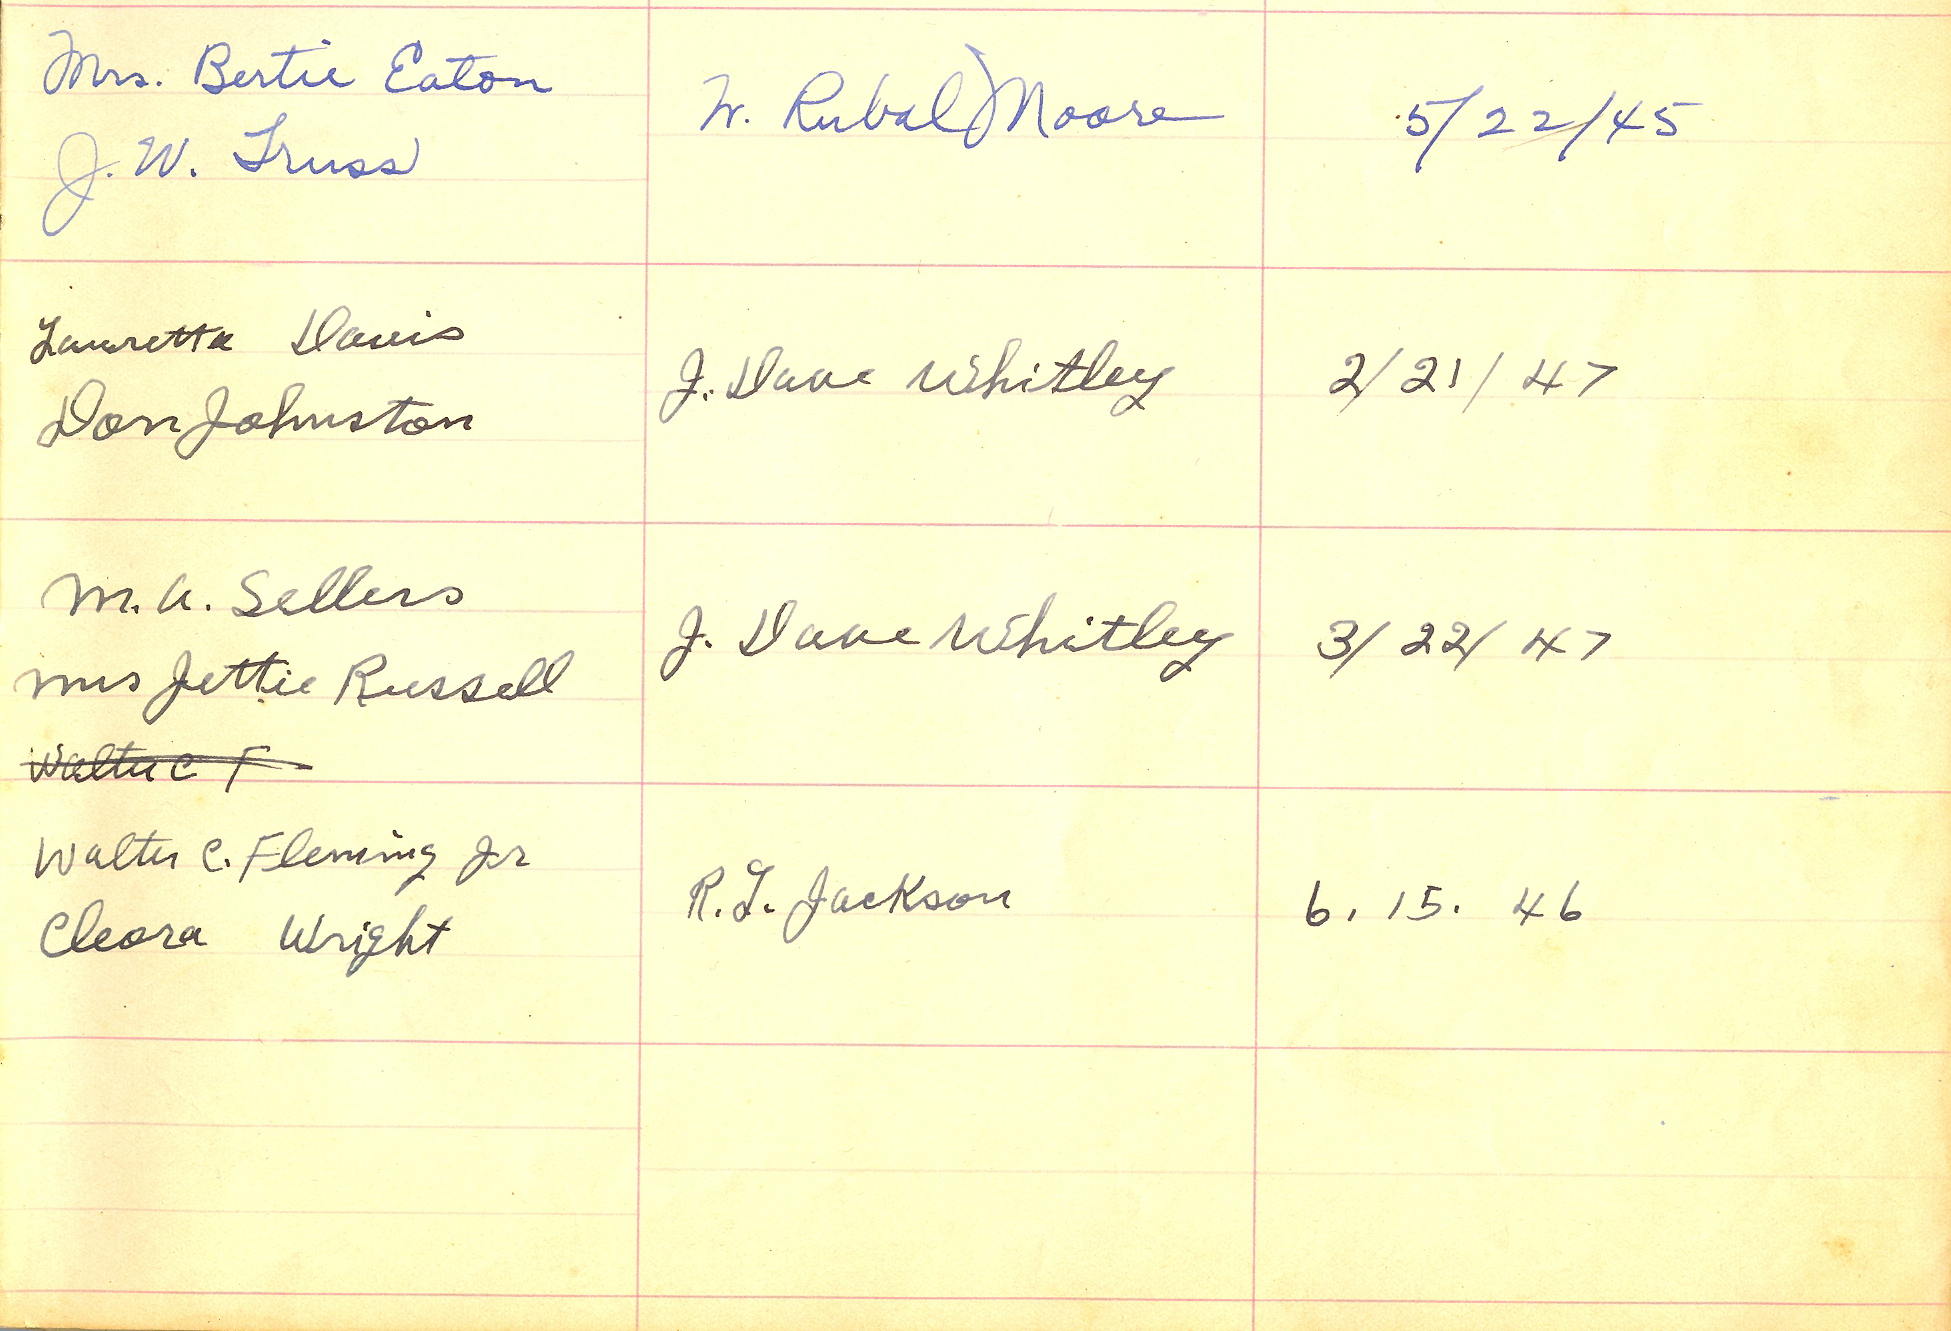 Mrs. Bertie Eaton
J. W. Truss
W. Rubal Moore
5/22/45
Lauretta Davis
Don Johnston
J. Dave Whitley
2/21/47
M. A. Sellers
Mrs Jettie Russell
Walter C F
J. Dave Whitley
3/22/47
Walter C. Fleming Jr
Cleora Wright
R. L. Jackson
6. 15. 46